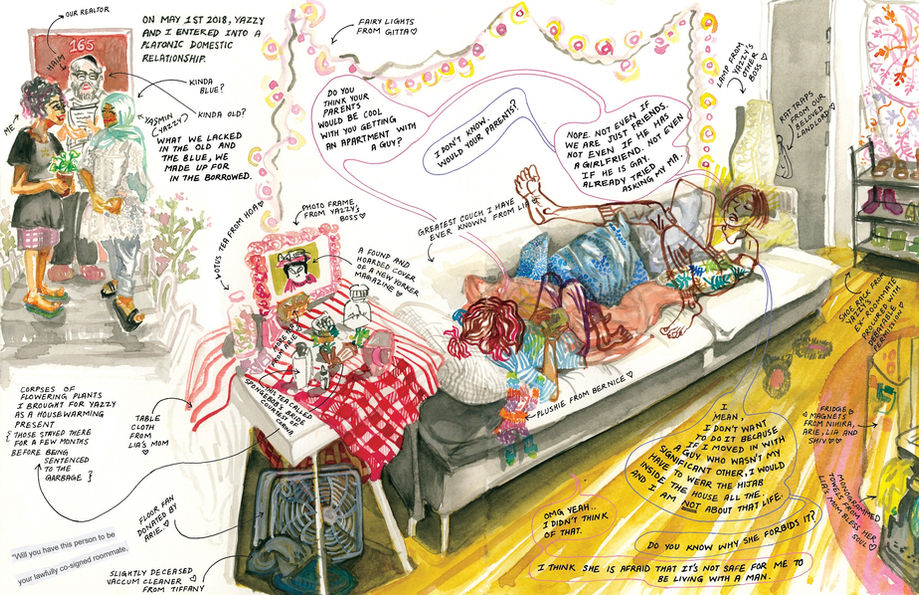 OUR REALTOR
165
HAIM
ME
ON MAY 1ST 2018, YAZZY
AND I ENTERED INTO A
PLATONIC DOMESTIC
RELATIONSHIP.
KINDA
BLUE?
KINDA OLD?
YASMIN
(YAZZY)
WHAT WE LACKED
IN THE OLD AND
THE BLUE, WE
MADE UP FOR
IN THE BORROWED.
FAIRY LIGHTS
FROM GITTA♡
DO YOU
THINK YOUR
PARENTS
WOULD BE COOL
WITH YOU GETTING
AN APARTMENT WITH
A GUY?
I DON'T KNOW.
WOULD YOUR PARENTS?
NOPE. NOT EVEN IF
WE ARE JUST FRIENDS.
NOT EVEN IF HE HAS
A GIRLFRIEND. NOT EVEN
IF HE IS GAY.
ALREADY TRIED
ASKING MY MA.
LAMP FROM
YAZZY'S
OTHER
BOSS♡
RAT TRAPS
FROM OUR
BELOVED
LANDLORD♡
LOTUS TEA FROM HOA♡
PHOTO FRAME
FROM YAZZY'S
BOSS♡
GREATEST COUCH I HAVE
EVER KNOWN FROM LIA♡
A FOUND AND
HOARDED COVER
OF A NEW YORKER
MAGAZINE♡
SHOE RACK FROM
YAZZY'S
EX-ROOMMATE
PROCURED WITH
DEBATABLE
PERMISSION♡
FROM ARIE
TEA CALLED
SPONGEBOB'S BRIDE
COURTESY OF
PLUSHIE FROM BERNICE♡
CORPSES OF
FLOWERING PLANTS
I BROUGHT FOR YAZZY
AS A HOUSEWARMING
PRESENT
{THOSE STAYED THERE
FOR A FEW MONTHS
BEFORE BEING
SENTENCED
TO THE
GARBAGE}
TABLE
CLOTH
FROM
LIA'S MOM♡
FLOOR FAN
DONATED BY
ARIE.♡
"Will you have this person to be
your lawfully co-signed roommate.
SLIGHTLY DECEASED
VACCUM CLEANER
FROM TIFFANY
I
MEAN,
I DON'T WANT
TO DO IT BECAUSE
IF I MOVED IN WITH
A GUY WHO WASN'T MY
SIGNIFICANT OTHER, I WOULD
HAVE TO WEAR THE HIJAB
INSIDE THE HOUSE ALL THE TIME
AND I AM NOT ABOUT THAT LIFE.
OMG YEAH..
I DIDN'T THINK
OF THAT.
DO YOU KNOW WHY SHE FORBIDS IT?
I THINK SHE IS AFRAID THAT IT'S NOT SAFE FOR ME TO
BE LIVING WITH A MAN.
FRIDGE
MAGNETS
FROM NIHIRA,
ARIE, LIA AND
SHIV♡♡♡
MONOGRAMMED
TOWELS FROM
LIA'S MOM BLESS HER
SOUL♡